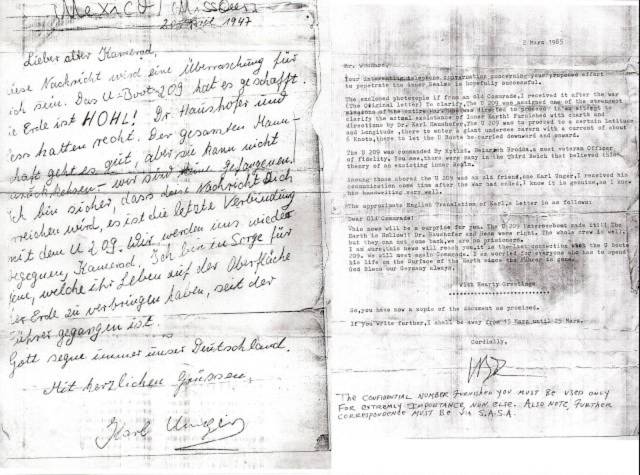 Mexico / Missouri
1947
Lieber alter Kamerad,
diese Nachricht wird eine Überraschung für
Dich sein. Das U-Boot 209 hat es geschafft.
Die Erde ist HOHL! Dr. Haushofer und
Hess hatten recht. Der gesamten Mann-
schaft geht es gut, aber sie kann nicht
zurückkehren - wir sind keine Gefangenen.
Ich bin sicher, dass diese Nachricht Dich
erreichen wird, es ist die letzte Verbindung
mit dem U 209. Wir werden uns wieder
begegnen, Kamerad. Ich bin in Sorge für
jene, welche ihr Leben auf der Oberfläche
der Erde zu verbringen haben, seit der
Führer gegangen ist.
Gott segne immer unser Deutschland.
Mit herzlichen Grüssen,
Karl Unger
2 Mars 1985
Mr.
Your interesting telephone conversation concerning your proposed effort
to penetrate the inner Realms is hopefully successful.
The enclosed photocopie if from an old Comrade, I received it after the war
(The Original letter) To clarify, The U 209 was assigned one of the strongest
clarify the actual existance of inner Earth. Furnished with charts and
directions by Dr. Karl Haushofer, The U 209 was to proceed to a certain Latitude
and Longitude, there to enter a giant undersea cavern with a current of about
6 Knots, hope to let the U Boote be carried downward and onward.
The U 209 was commanded By Kptlnt. Heinrich Brodda, a most veteran Officer
of fidelity. You see, there were many in the Third Reich that believed this
theory of an existing inner Realm.
Among those abored the U 209 was an old friend, one Karl Unger, I received his
communication some time after the war had ended, I know it is genuine, as I knew
his handwriting very well.
The approximate English Translation of Karl,s letter is as follows:
Dear Old Comerade:
This news will be a surprise for you. The U 209 Unterseeboot made it!! The
Earth is Hollow!! Dr. Haushofer and Hess were right. The whole crew is well,
but they can not come back, we are no prisoners.
I am sure, this news will reach you, it is the last connection with the U Boote
209. We will meet again Comerade. I am worried for everyone who has to spend
his life on the Surface of the Earth since the Führer is gone.
God Bless our Germany always.
With Hearty Greetings
So, you have now a copie of the document as promised.
If you Write further, I shall be away from 15 Mars until 25 Mars.
Cordially,
THE CONFIDENTIAL NUMBER FURNISHED YOU MUST BE USED ONLY
FOR EXTREMLY IMPORTANCE, NON ELSE. ALSO NOTE, FURTHER
CORRESPONDENCE MUST BE VIA S.A.S.A.